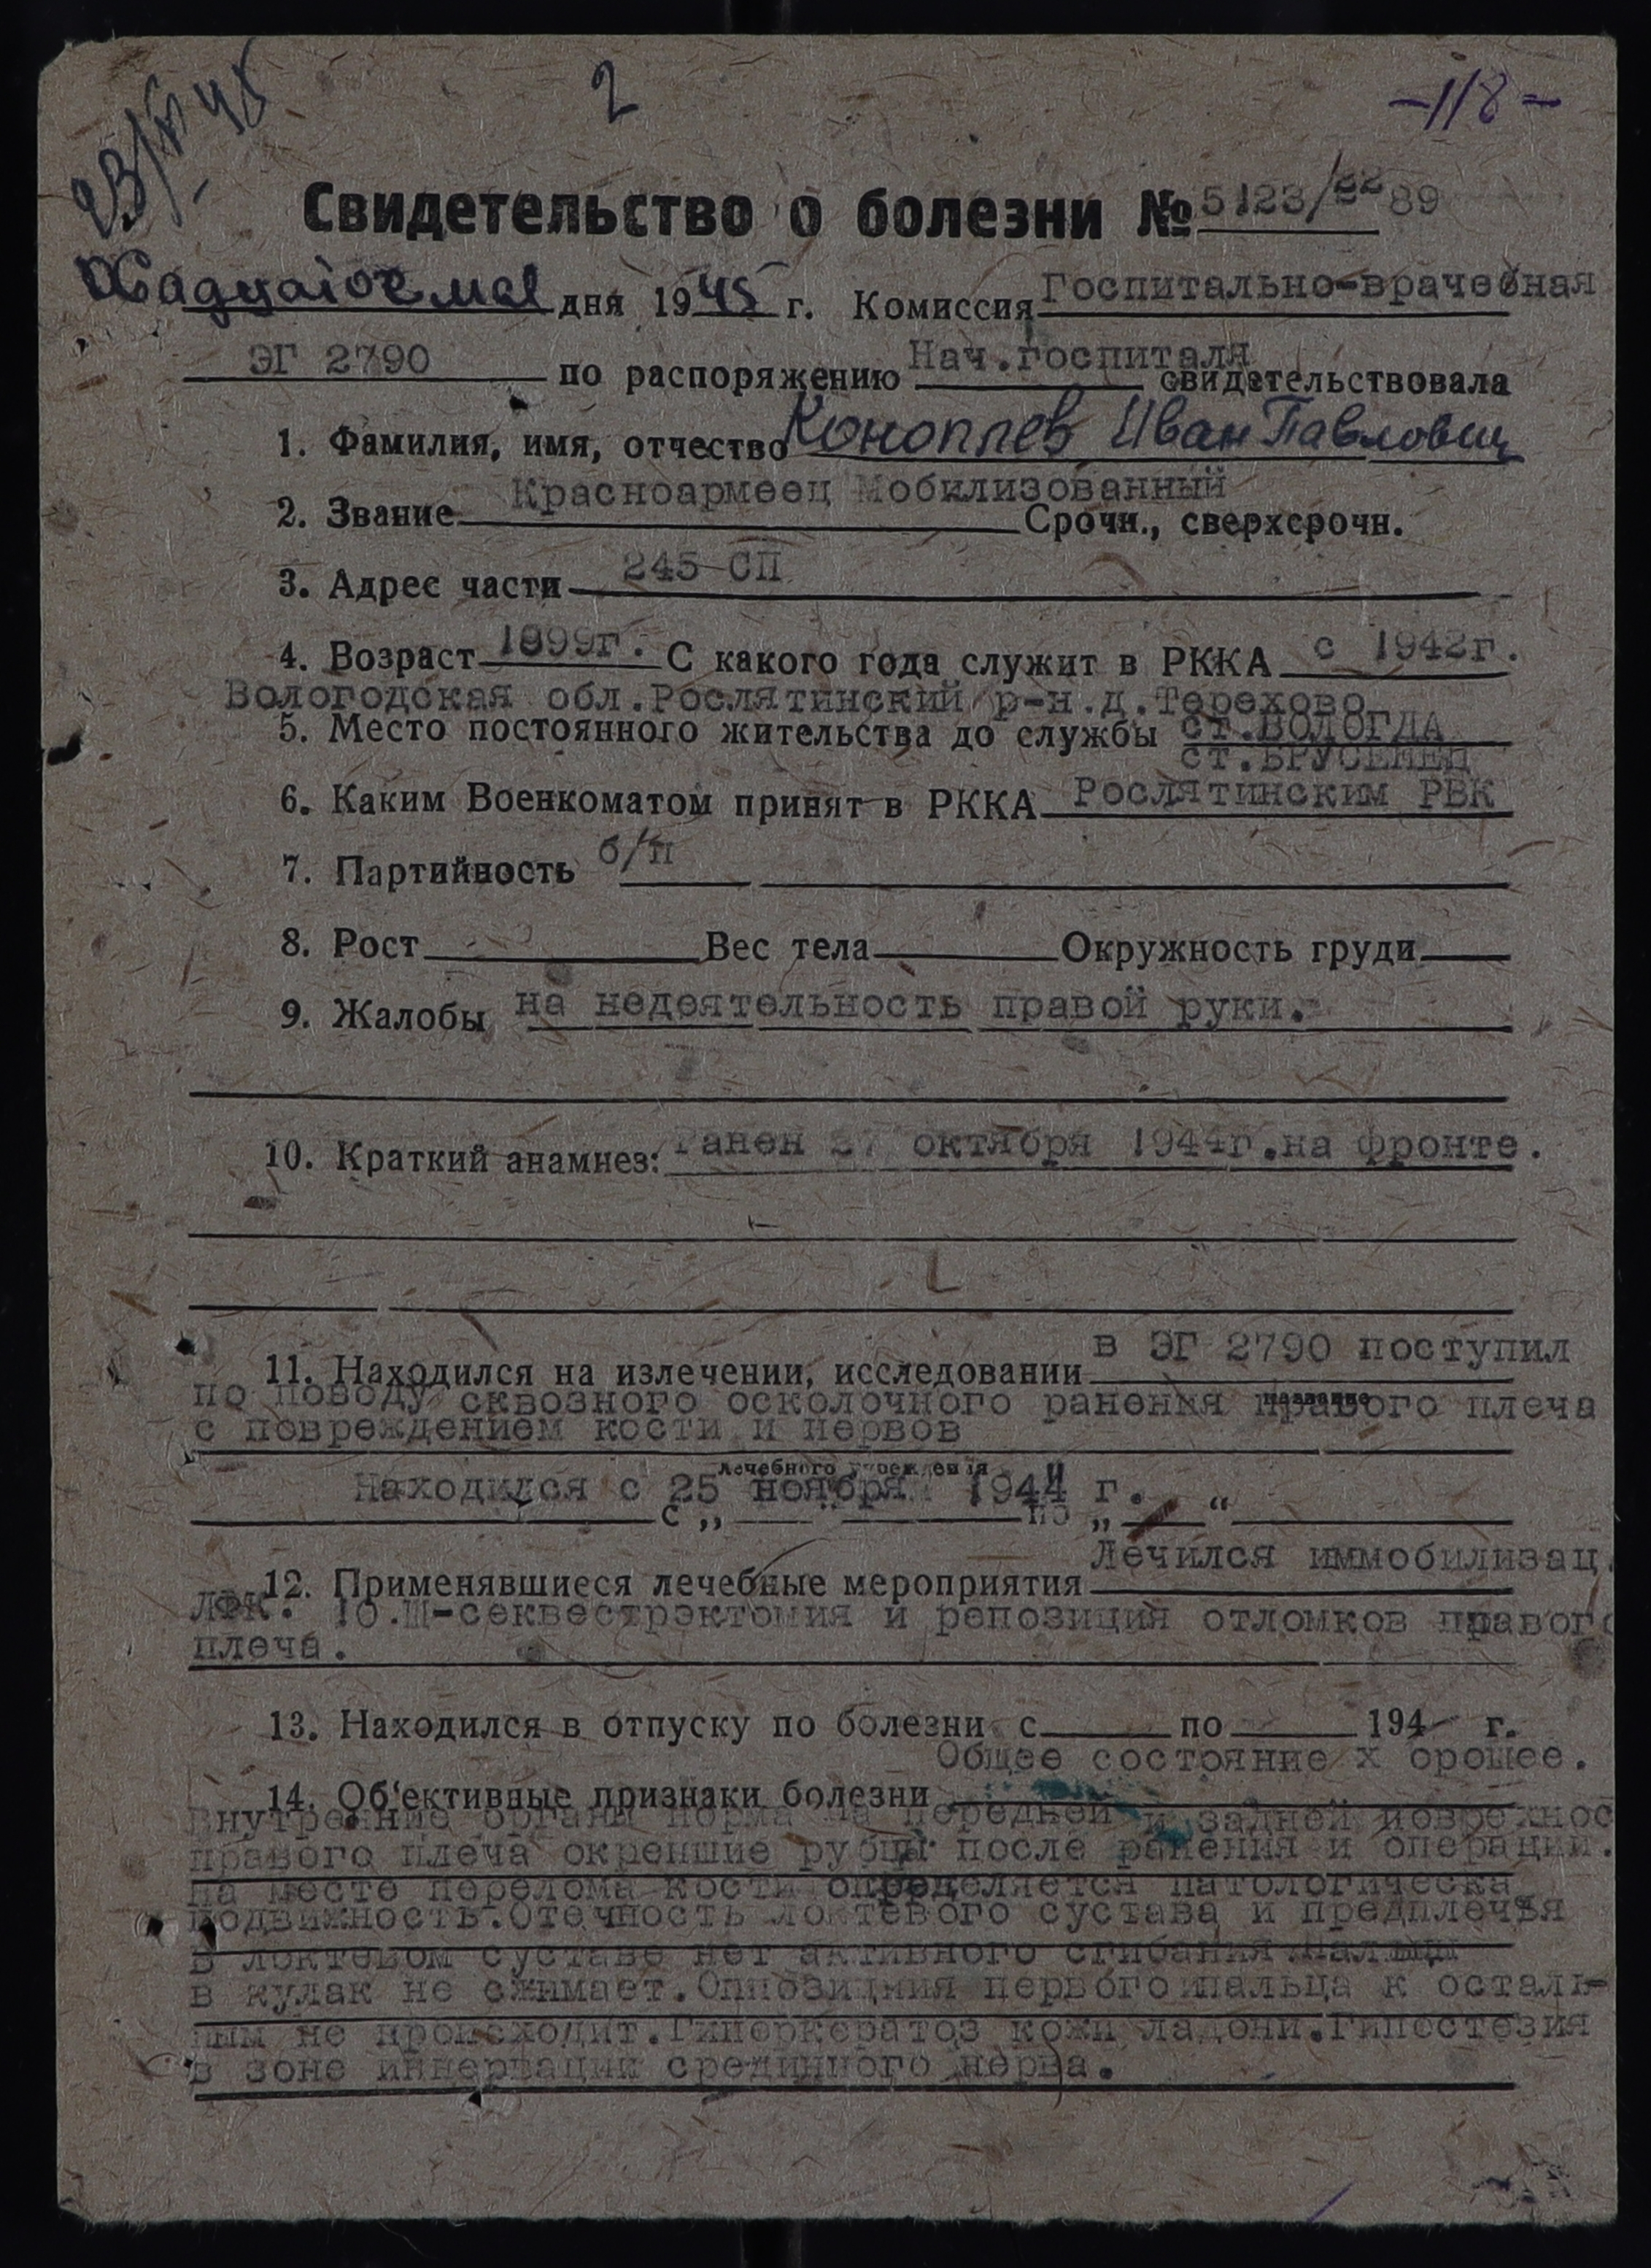 2
-118-
23/V-45
Свидетельство о болезни № 5123/2289
Двадцатое мая дня 1945 г. Комиссия Госпитально-врачебная
ЭГ 2790 по распоряжению Нач.госпиталя свидетельствовала
1. Фамилия, имя, отчество Коноплев Иван Павлович
2. Звание Красноармеец Мобилизованный Срочн., сверхсрочн.
3. Адрес части 245 СП
4. Возраст 1899г. С какого года служит в РККА с 1942г.
Вологодская обл.Рослятинский р-н.д.Терехово
5. Место постоянного жительства до службы ст.ВОЛОГДА
ст.БРУСЕНЕЦ
6. Каким Военкоматом принят в РККА Рослятинским РВК
7. Партийность б/п
8. Рост Вес тела Окружность груди
9. Жалобы на недеятельность правой руки.
10. Краткий анамнез: Ранен 27 октября 1944г.на фронте.
11. Находился на излечении, исследовании в ЭГ 2790 поступил
название
по поводу сквозного осколочного ранения правого плеча
с повреждением кости и нервов
лечебного учреждения
Находился с 25 ноября 1944 г.
с „ " по „ "
12. Применявшиеся лечебные мероприятия Лечился иммобилизац.
ЛФК. 10.Ш-секвестрэктомия и репозиция отломков правого
плеча.
13. Находился в отпуску по болезни с по 194 г.
Общее состояние х орошее.
14. Об'ективные признаки болезни
Внутренние органы норма на передней и задней поврехнос
правого плеча окрепшие рубцы после ранения и операции.
на месте перелома кости определяется патологическа
подвижность.Отечность локтевого сустава и предплечья
В локтевом суставе нет активного сгибания.пальцы
в кулак не сжимает.Оппозицния первого пальца к осталь-
ным не происходит.Гиперкератоз кожи ладони.Гипестезия
в зоне иннервации срединного нерва.